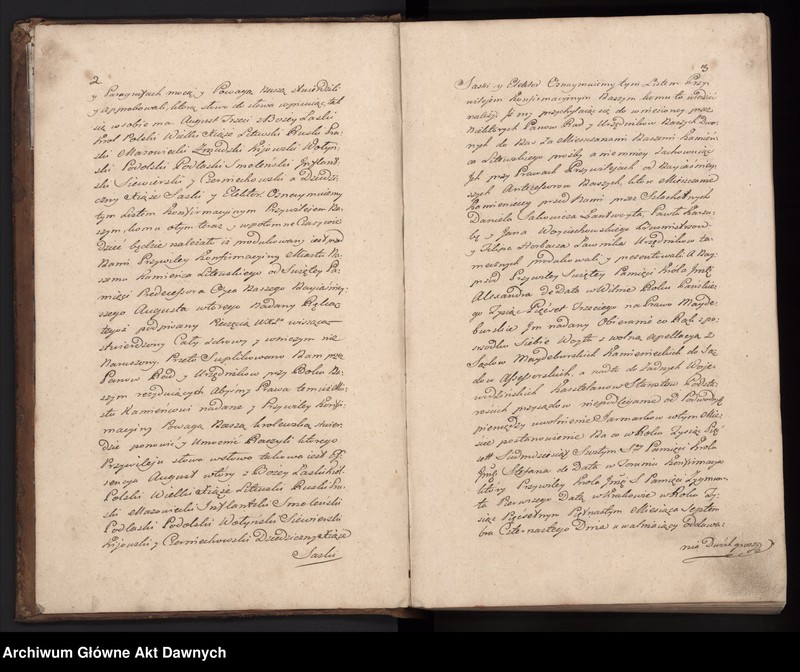 2
y Paragrafach mocą y Powagą Naszą stwierdzili
y approbowali, który słowo do słowa wpisując tak
się w sobie ma August Trzeci z Bozey Łaski
Krol Polski Wielki Xiąże Litewski Ruski Pru-
ski Mazowiecki Zmudzki Kijowski Wołyn-
ski Podolski Podlaski Smolenski Inflant-
ski Siewierski y Czerniechowski a Dziedzi-
czny Xiąże Saski y Elektor. Oznaymuiemy
tym Listem Konfirmacyinym Przywilejem Na-
szym, komu o tym teraz y na potomne Czasy wie-
dzieć będzie należało iż produkowany jest przed
Nami Przywiley Konfirmacyiny Miastu Na-
szemu Kamieńca Litewskiego od Świętey Pa-
mięci Predecessora Oyca Naszego Nayiaśniey-
szego Augusta wtorego Nadany Ręką
tegoż podpisany Pieczęcią WXL wiszącą
stwierdzony Cały zdrowy y w niczym nie
Naruszony. Przeto Suplikowano Nam przez
Panow Rad y Urzędnikow przy Boku Na-
szym rezyduiących Abyśmy Prawa temuż Mia-
stu Kamieńcowi nadane y Przywiley Konfir-
macyiny Powagą Naszą krolewską stwier-
dzić ponowić y Umocnić Raczyli którego
Przywileju słowo w słowo takowa jest Es-
sencya August wtóry z Bozey Łaski Krol
Polski Wielki Xiąże Litewski Ruski Pru-
ski Mazowiecki Inflantski Smolenski
Podlaski Podolski Wołynski Siewierski
Kijowski y Czerniechowski Dziedziczny Xiąże
Saski
3
Saski y Elektor Oznaymuiemy tym Listem Przy-
wilejem Konfirmacyinym Naszym komu to wiedzieć
należy Iż my przychylaiąc się do wniesioney przez
Niektorych Panow Rad y Urzędnikow Naszych Dwor-
nych do Nas za Mieszczanami Naszemi Kamień-
ca Litewskiego prośby a niemniey zachowuiąc
Ich przy Prawach Przywilejach od Nayiaśniey-
szych Antecessorow Naszych, które Mieszczanie
Kamienieccy przed Nami przez Szlachetnych
Daniela Sakowicza Lantwoyta, Pawła Kara-
y Jana Woyciechowskiego Burmistrzow
y Filipa Horbacza Ławnika Urzędnikow ta-
mecznych produkowali y prezentowali. A Nay-
przod Przywiley Świętey Pamięci Krola Jmści
Alexandra de Data w Wilnie Roku Panskie-
go Tysiąc Pięćset Trzeciego na Prawo Mayde-
burskie Im nadany Obierania co Rok z po-
srodku Siebie Woyta z wolną appellacyą z
Sądow Maydeburskich Kamienieckich do Są-
dow Assessorskich, a nadto do żadnych Woje-
wodzinskich Kasztelanow Starostow Podsta-
rościch przysądow niepodlegania od Podwodnych
pieniędzy uwolnienie Jarmarkow w tym Mie-
ście postanowienie Na co w Roku Tysiąc Pięć
set Siedmdziesiąt Szostym Sey Pamięci Krola
Jmści Stefana de Data w Toruniu Konfirmacya
który Przywiley Krola Jmści S Pamięci Zygmun-
ta Pierwszego Datą w Krakowie w Roku Ty-
siąc Pięćsetnym Piętnastym Miesiąca Septem
bra Czternastego Dnia uwalniaiący Podawa-
nia Dwoch groszy
Archiwum Główne Akt Dawnych